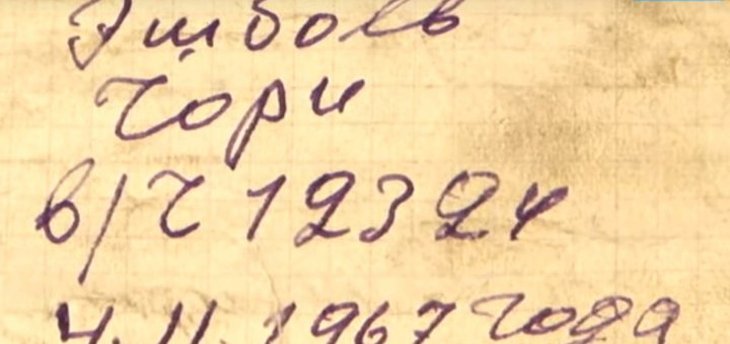 Эшбоев
Чори
в/ч 12324
4.11.1967 года